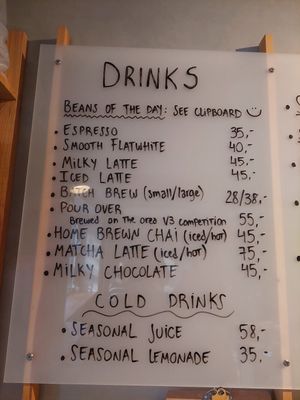 DRINKS
BEANS OF THE DAY: SEE CLIPBOARD
• ESPRESSO 35,-
• SMOOTH FLATWHITE 40,-
• MILKY LATTE 45,-
• ICED LATTE 45,-
• BATCH BREW (small/large) 28/38,-
• POUR OVER
BREWED ON THE OREO V3 COMPETITION 55,-
• HOME BREWN CHAI (iced/hot) 45,-
• MATCHA LATTE (iced/hot) 75,-
• MILKY CHOCOLATE 45,-
COLD DRINKS
• SEASONAL JUICE 58,-
• SEASONAL LEMONADE 35,-